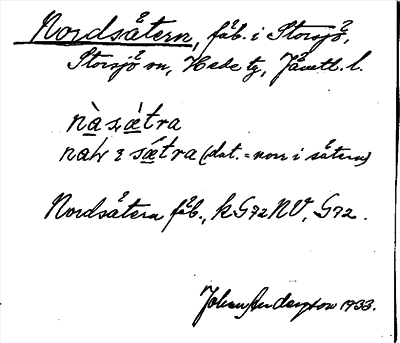 Nordsätern, fäb. i Storsjö,
Storsjö sn, Hede tg, Jämtl. l.
nàsǽtra
sǽtra (dat. = norr i sätern)
Nordsätern fäb., kG72NV, G72.
Johan Anderzon 1933.